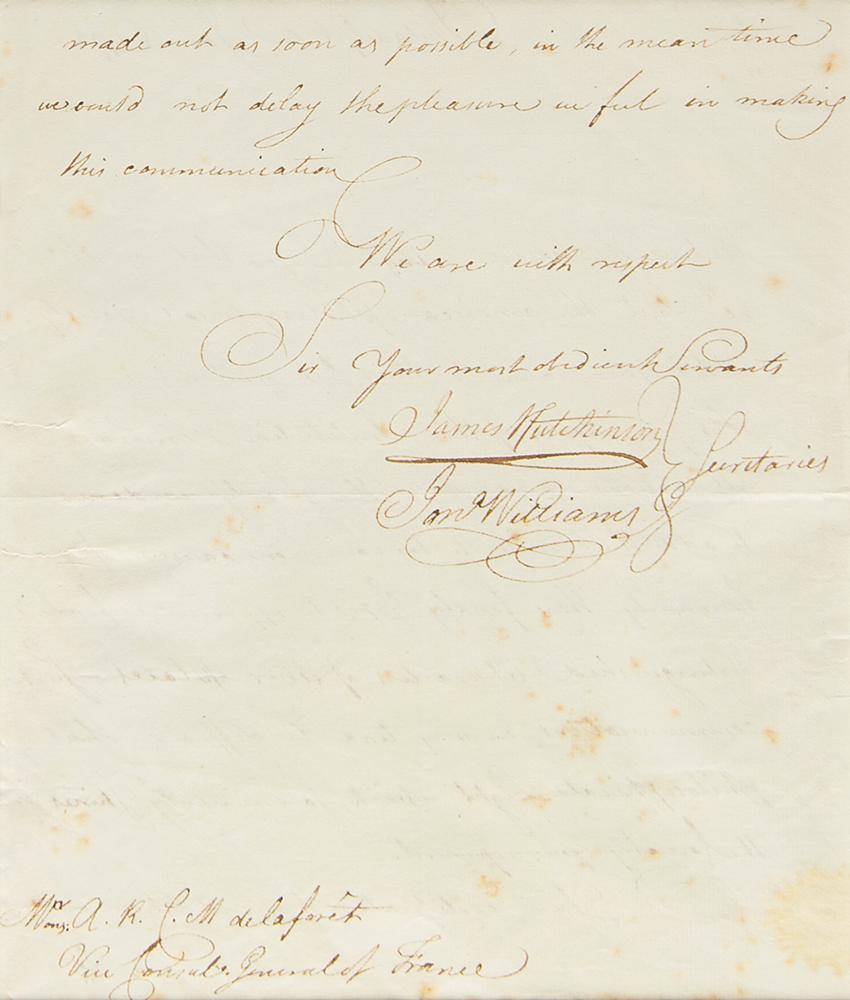 made out as soon as possible, in the mean time
we would not delay the pleasure we feel in making
this communication
We are with respect
Sir Your most obedient Servants
James Hutchinson
Secretaries
Jonª Williams
Monsr. A. R. C. M delaforêt
Vice Consul. General of France